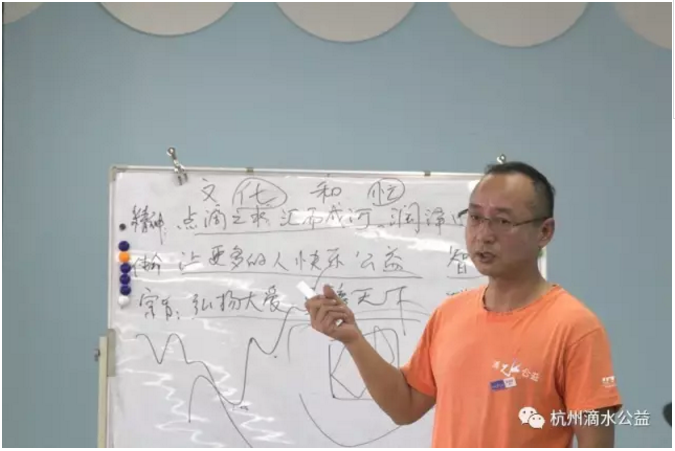 文化 和
精神 点滴之水 汇而成河 润泽
让更多的人快乐公益 智
宗旨：弘扬大爱 天下
公益
杭州滴水公益